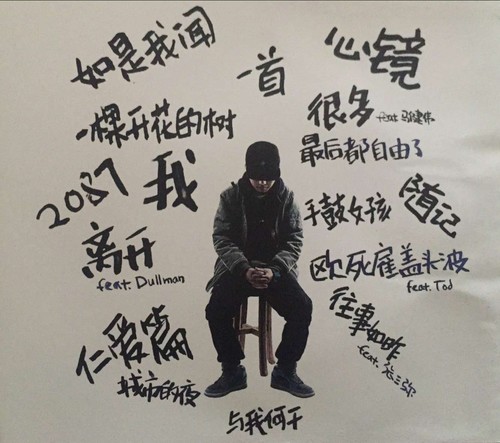 如是我闻
一首
心镜
一棵开花的树
很多
最后都自由了
2087
我
手鼓女孩
随记
离开
feat. Dullman
欧死雇盖头波
feat. Tod
往事如昨
feat. 张三弥
仁爱篇
城市的夜
与我何干